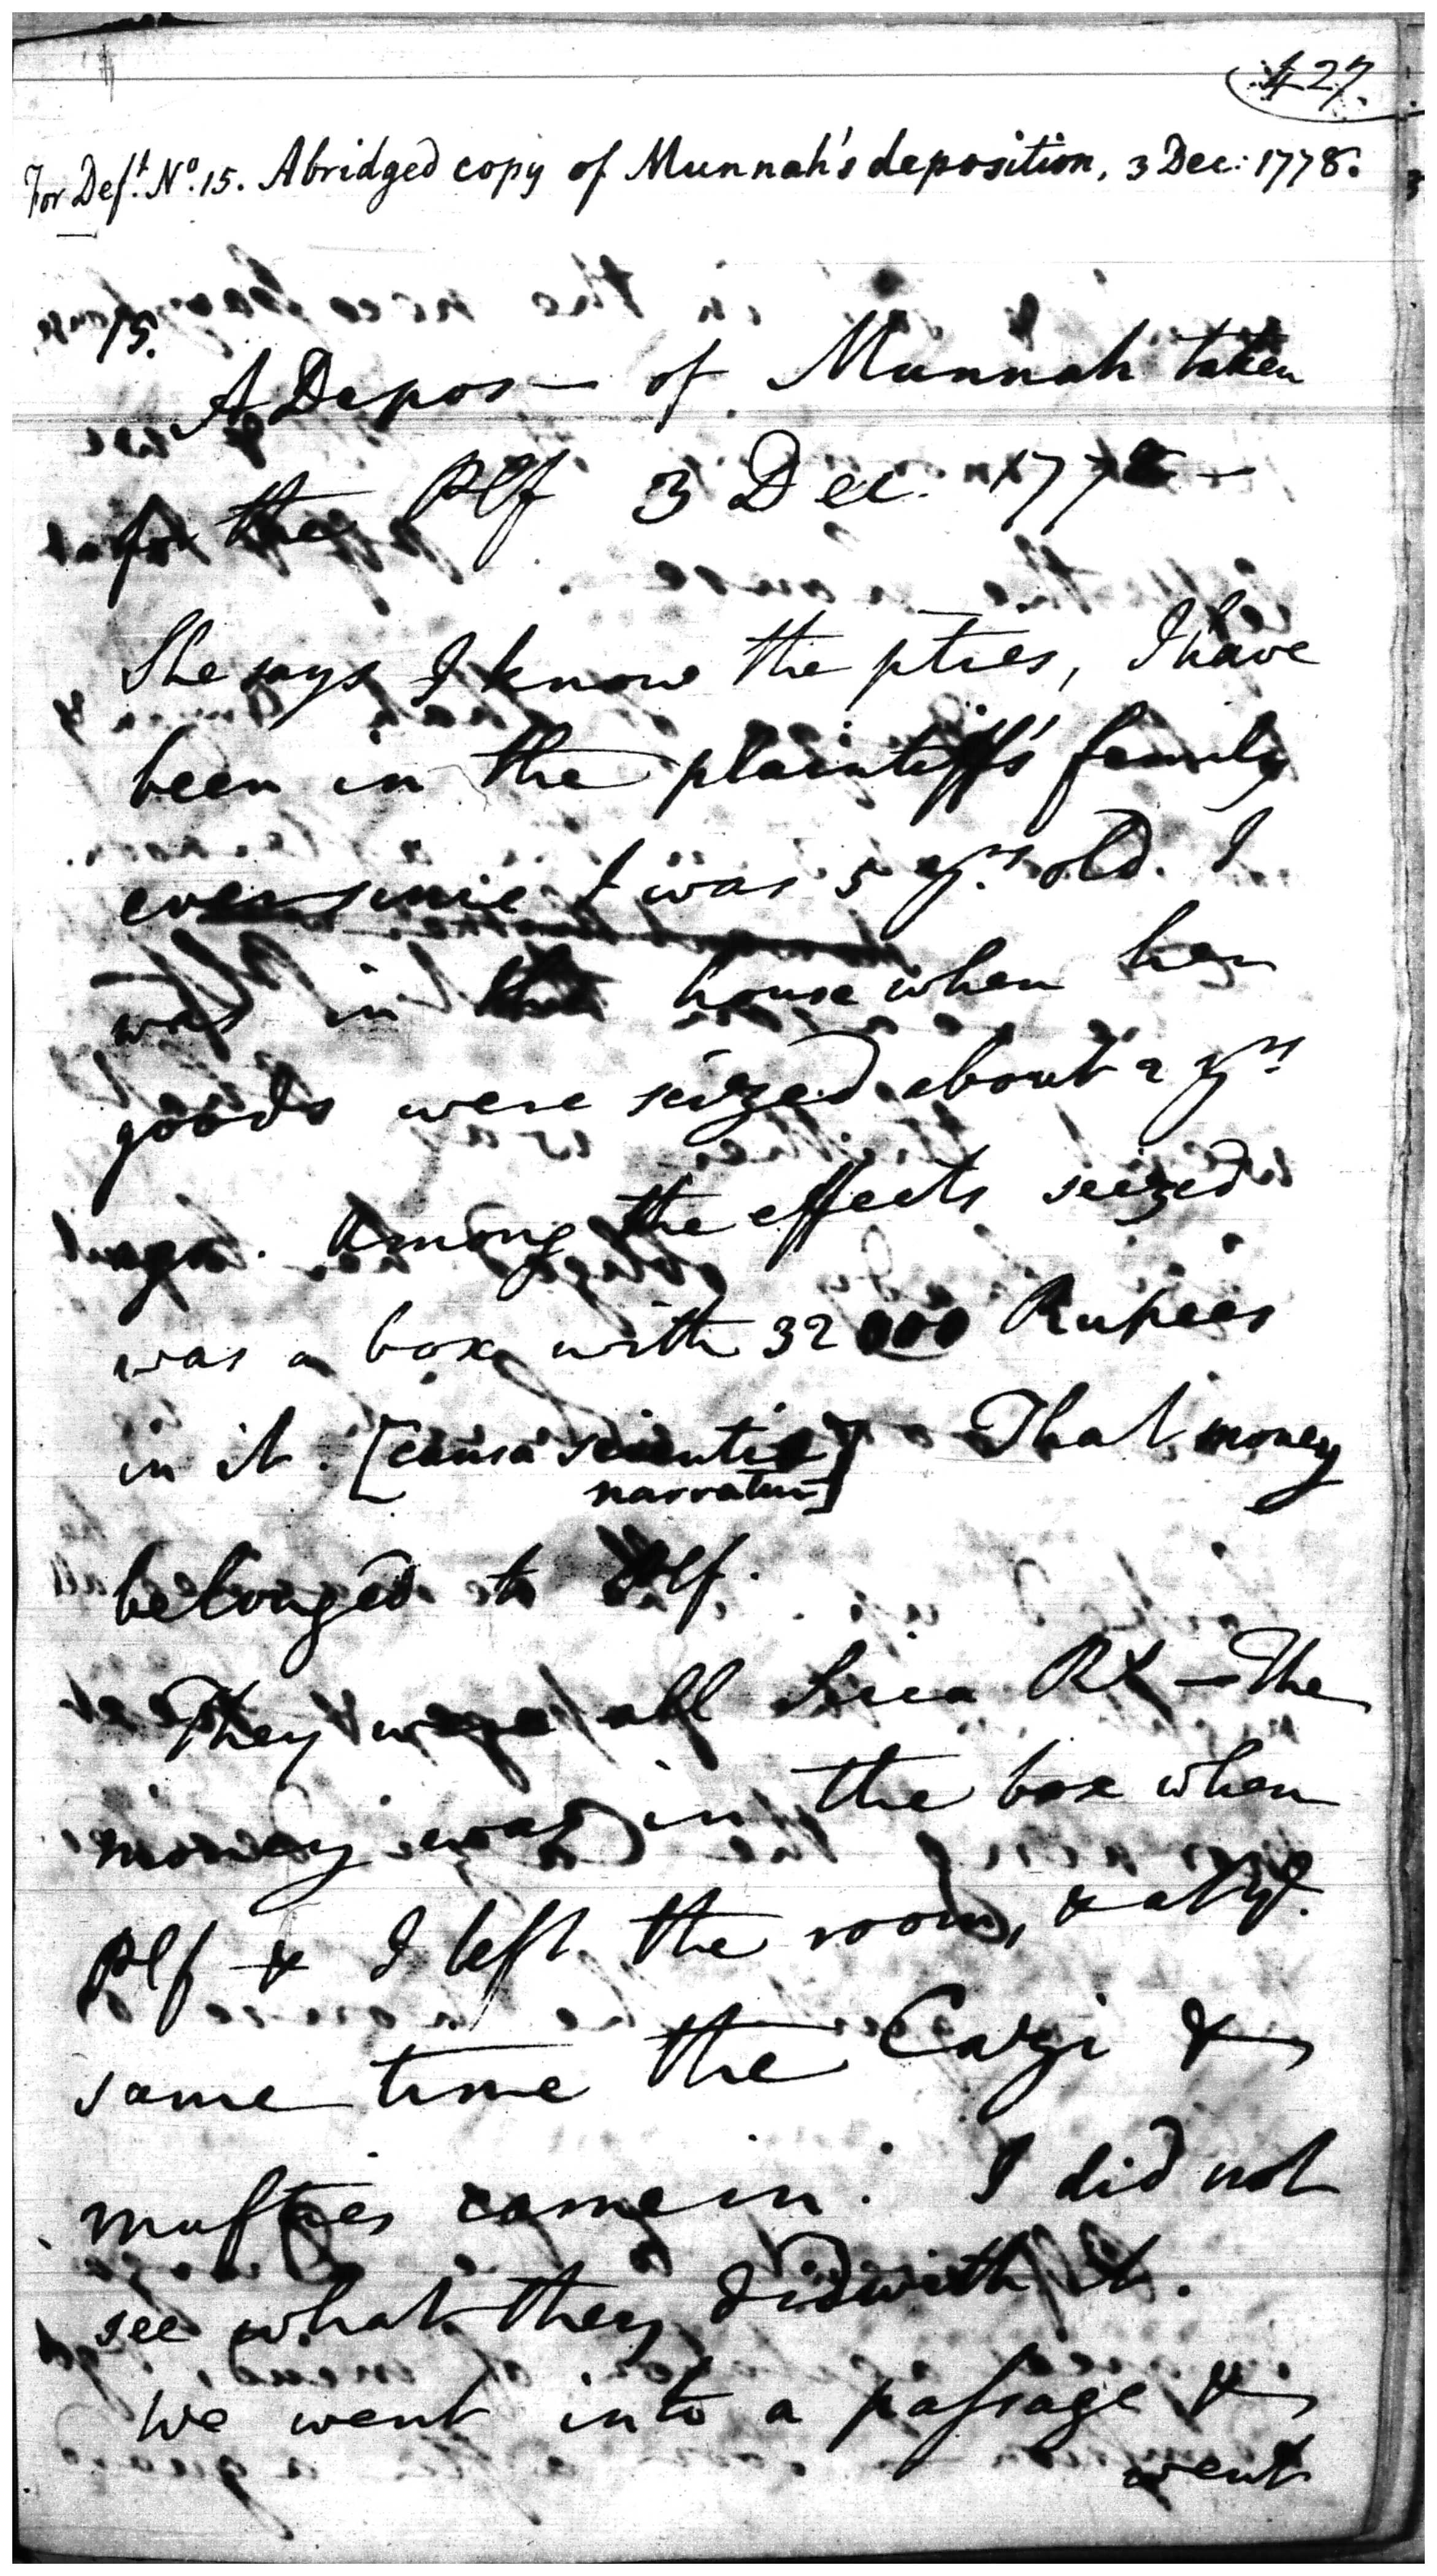 427.
For Def.t N.o 15. Abridged copy of Munnah's deposition, 3 Dec: 1778.
15.
A Depos— of Munnah taken
for the Plf 3 Dec. 1778 —
She says I know the pties, I have
been in the plaintiff's family
ever since I was 5 y.rs old. I
was in the house when her
goods were seized about 2 y.rs
ago. Among the effects seized
was a box with 32000 Rupees
in it. [causa scientiæ
narratur] That money
belonged to Plf.
They were all Sicca Rs — The
money was in the box when
Plf & I left the room, & at y.e
same time the Cazi &
mufties came in. I did not
see what they did with it.
We went into a passage &
went